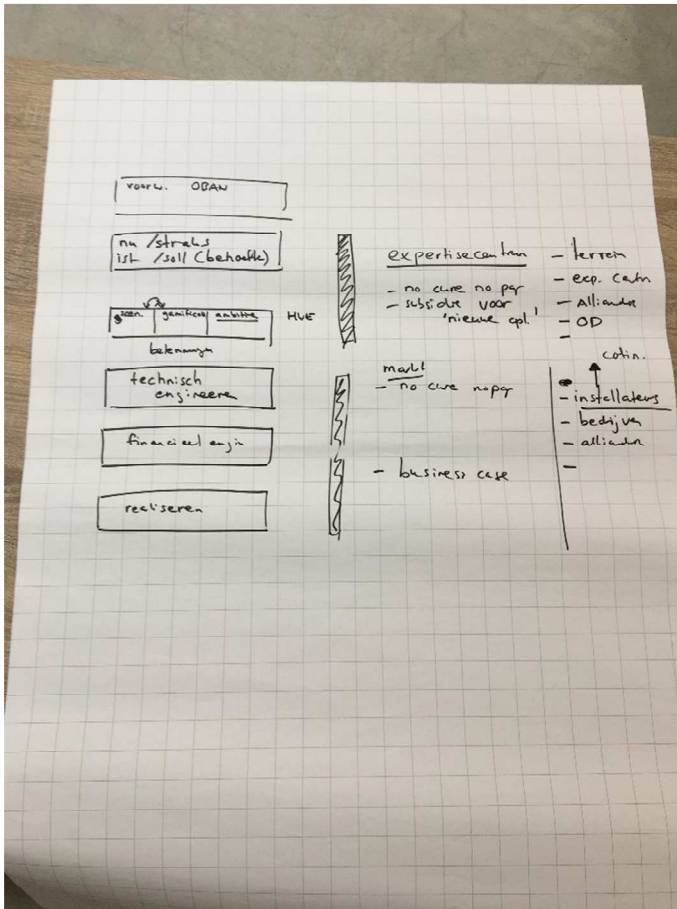 voorw. OBAN
nu /straks
ist /soll (behoefte)
scen. gamificat ambitie HUE
technisch
engineeren
financieel engin
realiseren
expertisecentrum
- no cure no pay
- subsidie voor
'nieuwe opl.'
markt
- no cure no pay
- business case
- terrein
- exp. centr
- Alliander
- OD
-
- installateurs
- bedrijven
- alliander
-